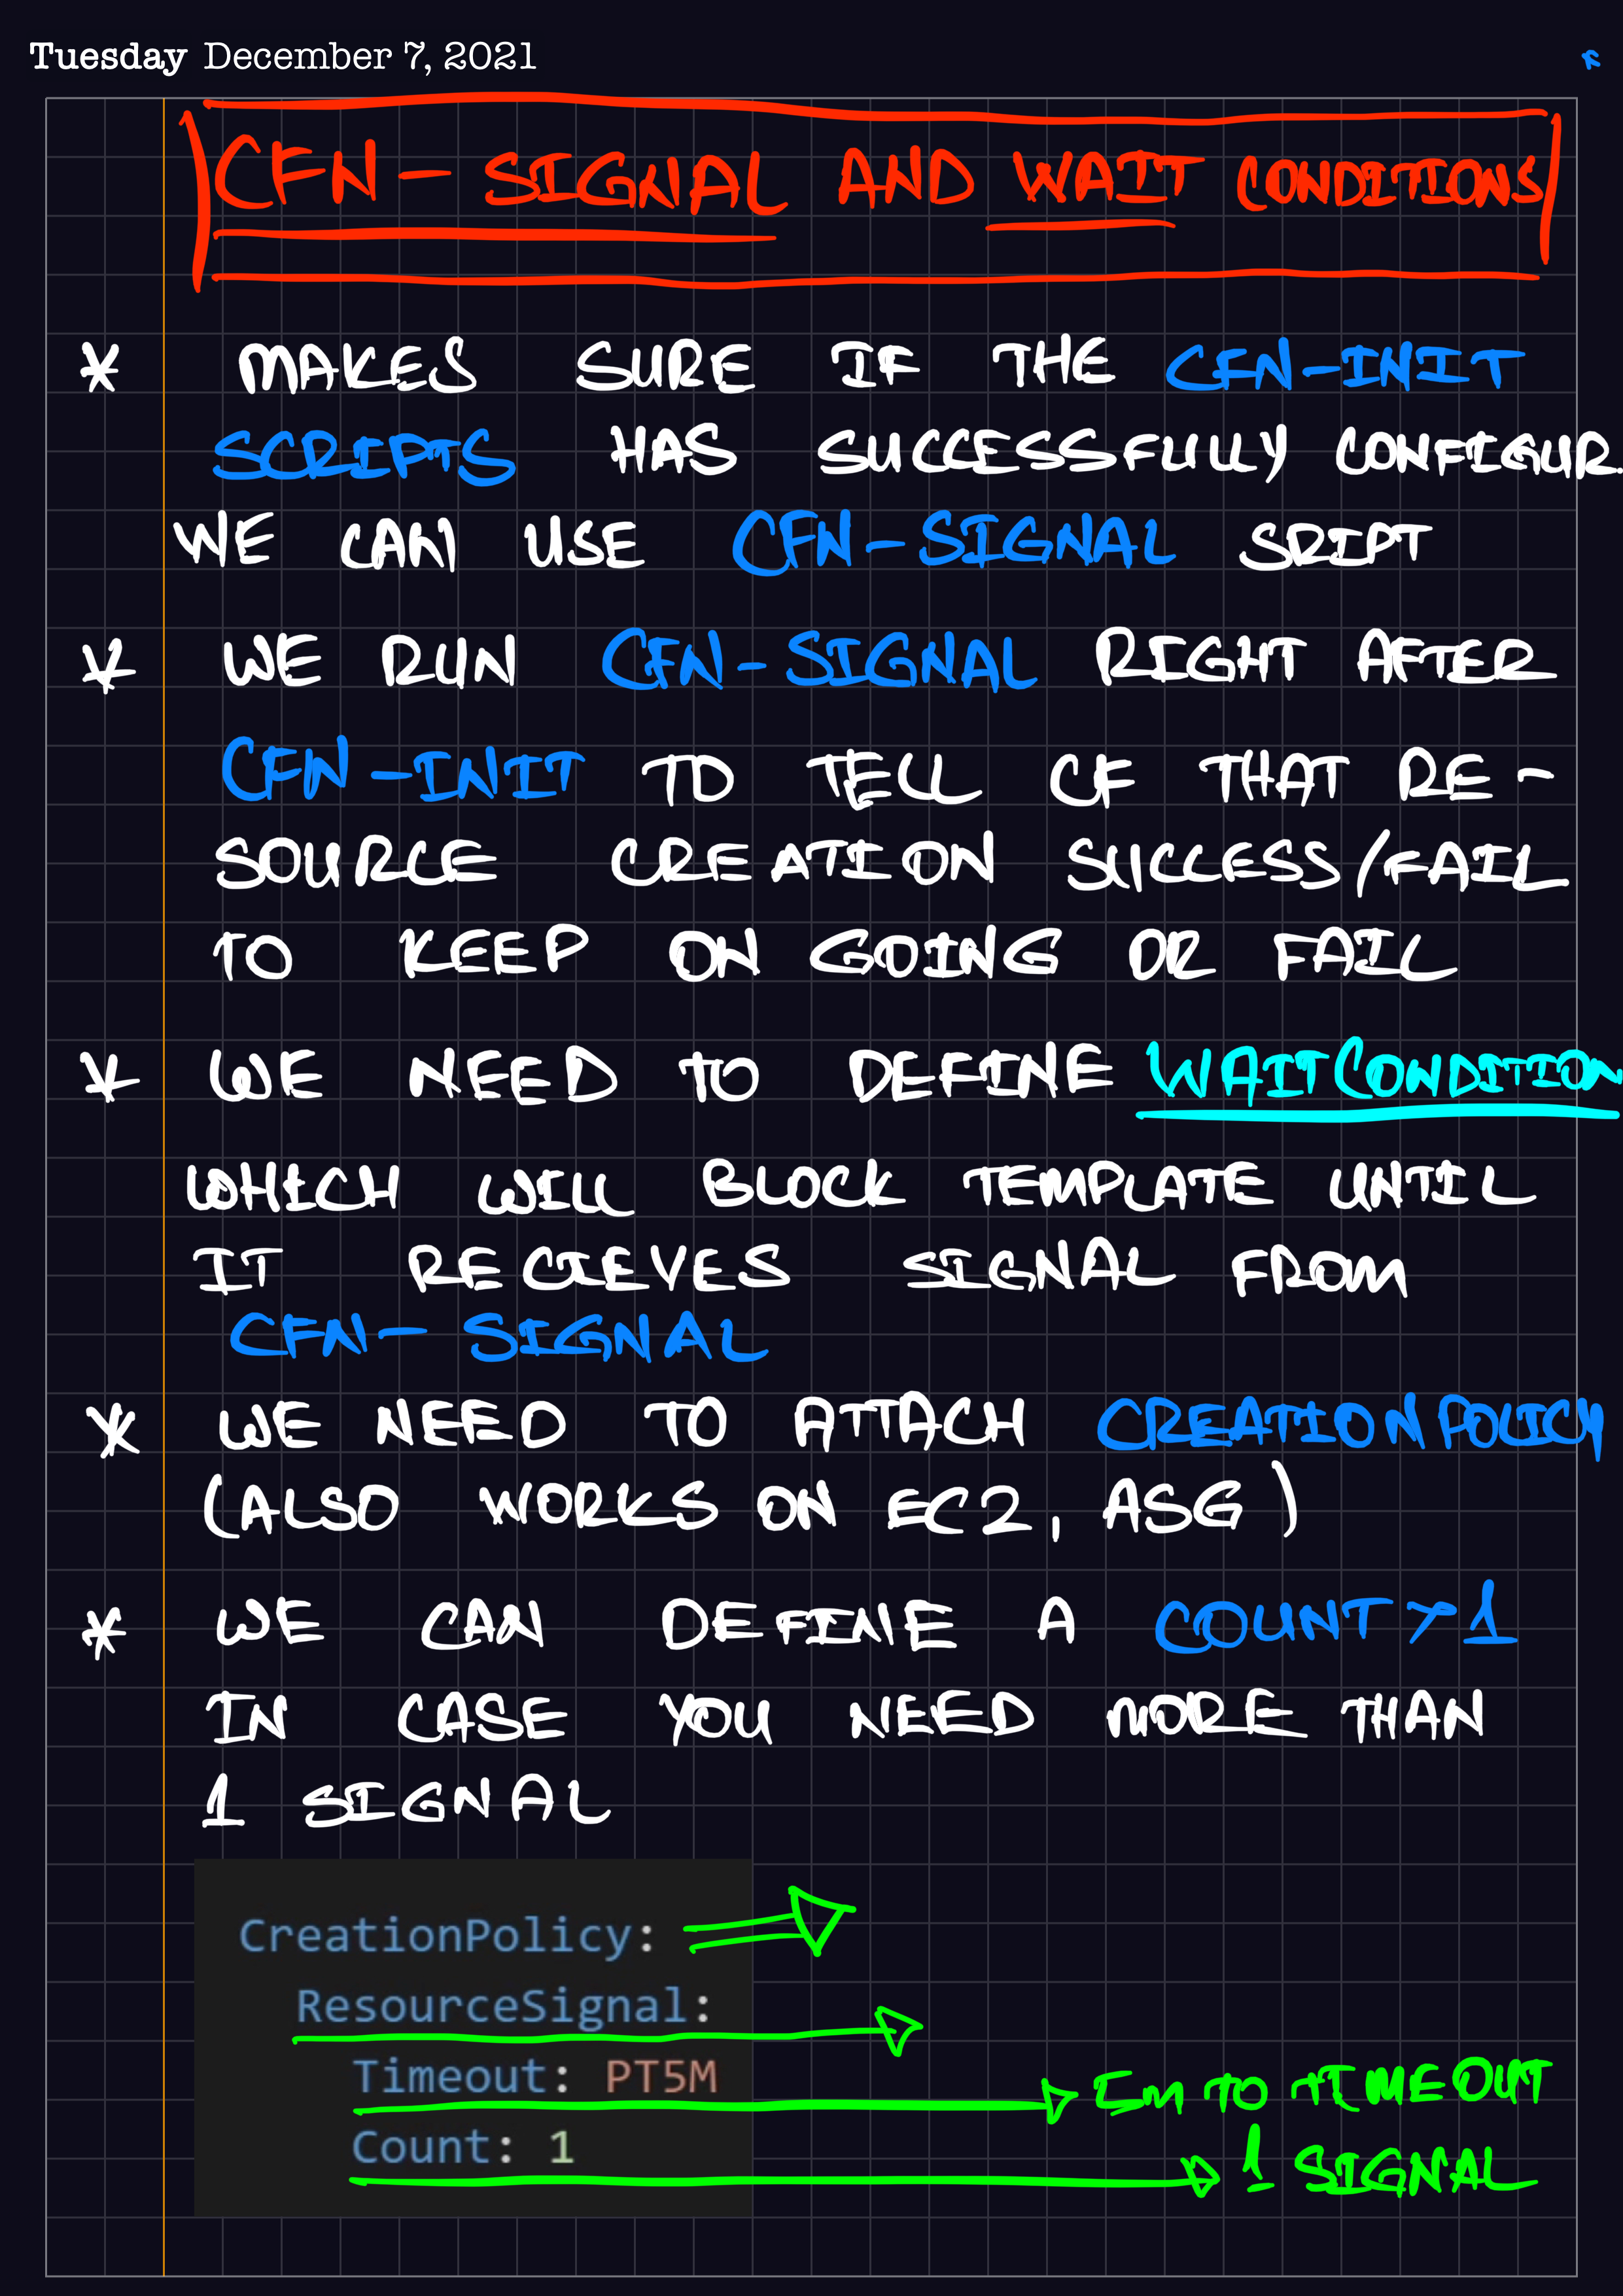 Tuesday December 7, 2021
CFN-SIGNAL AND WAIT CONDITIONS
* MAKES SURE IF THE CFN-INIT
SCRIPTS HAS SUCCESSFULLY CONFIGUR.
WE CAN USE CFN-SIGNAL SRIPT
* WE RUN CFN-SIGNAL RIGHT AFTER
CFN-INIT TO TELL CF THAT RE-
SOURCE CREATION SUCCESS/FAIL
TO KEEP ON GOING OR FAIL
* WE NEED TO DEFINE WAITCONDITION
WHICH WILL BLOCK TEMPLATE UNTIL
IT RECIEVES SIGNAL FROM
CFN-SIGNAL
* WE NEED TO ATTACH CREATIONPOLICY
(ALSO WORKS ON EC2, ASG)
* WE CAN DEFINE A COUNT>1
IN CASE YOU NEED MORE THAN
1 SIGNAL
CreationPolicy:
ResourceSignal:
Timeout: PT5M 5M TO TIMEOUT
Count: 1 1 SIGNAL